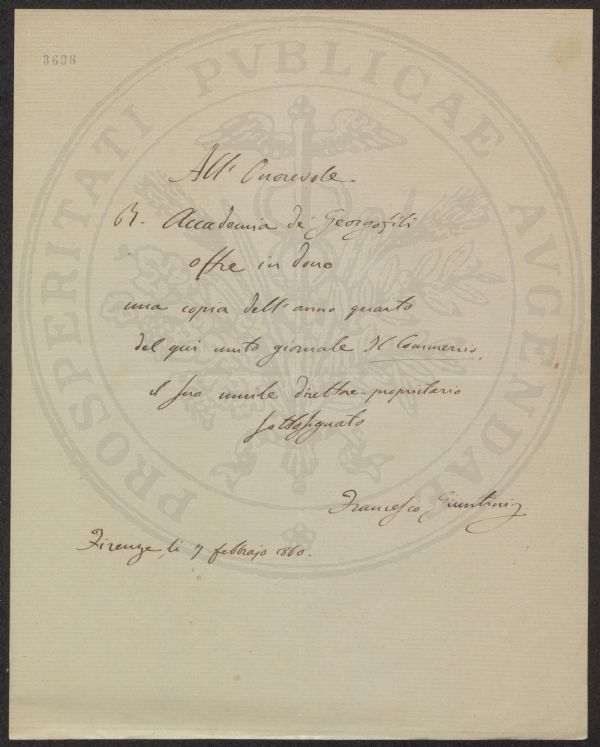 3698
PROSPERITATI PVBLICAE AVGENDAE
All' Onorevole
R. Accademia de' Georgofili
offre in dono
una copia dell'anno quarto
del qui unito giornale Il Commercio,
il suo umile direttore-proprietario
sottosegnato
Francesco Giuntini
Firenze, li 7 febbrajo 1860.